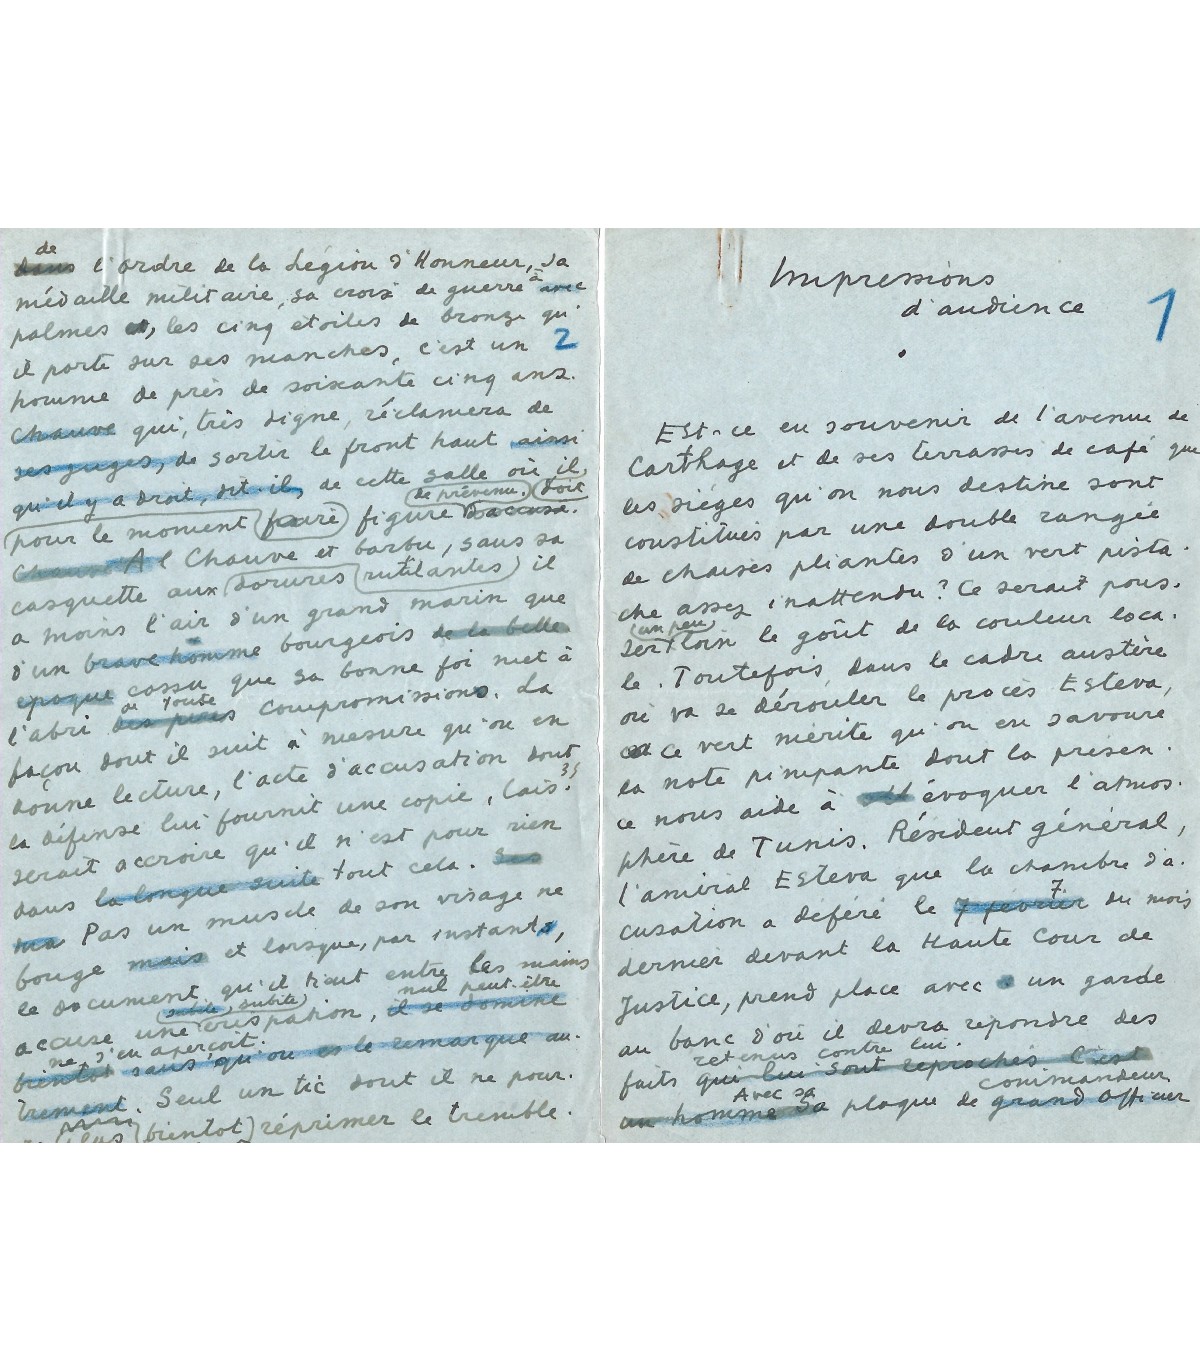 Impressions
d'audience
1
Est-ce en souvenir de l'avenue de
Carthage et de ses terrasses de café que
les sièges qu'on nous destine sont
constitués par une double rangée
de chaises pliantes d'un vert pista-
che assez inattendu ? Ce serait pous-
(un peu)
ser loin le goût de la couleur loca-
le. Toutefois, dans le cadre austère
où va se dérouler le procès Esteva,
ce vert mérite qu'on en savoure
la note pimpante dont la présen-
ce nous aide à évoquer l'atmos-
phère de Tunis. Résident général,
l'amiral Esteva que la chambre d'a-
7
cusation a déféré le 7 février du mois
dernier devant la Haute Cour de
Justice, prend place avec un garde
au banc d'où il devra répondre des
retenus contre lui.
faits qui lui sont reprochés C'est
Avec sa commandeur
un homme Sa plaque de grand officier
de
dans l'ordre de la Légion d'Honneur, sa
médaille militaire, sa croix de guerre à avec
palmes et, les cinq étoiles de bronze qu'
il porte sur ses manches, c'est un 2
homme de près de soixante cinq ans.
Chauve qui, très digne, réclamera de
ses juges, de sortir le front haut ainsi
qu'il y a droit, dit-il, de cette salle où il,
de prévenu. doit
pour le moment faire figure d'accusé.
Chauve A Chauve et barbu, sans sa
casquette aux dorures rutilantes il
a moins l'air d'un grand marin que
d'un brave homme bourgeois de la belle
époque cossu que sa bonne foi met à
ou toute
l'abri des pires compromissions. La
façon dont il suit à mesure qu'on en
donne lecture, l'acte d'accusation dont
la défense lui fournit une copie, lais-
serait accroire qu'il n'est pour rien
dans la longue suite tout cela. Ses
ma Pas un muscle de son visage ne
bouge mais et lorsque, par instants,
le document qu'il tient entre les mains
subite, subite nul peut-être
accuse une crispation, il se domine
ne s'en aperçoit.
bientôt sans qu'on es le remarque au-
trement. Seul un tic dont il ne pour-
plus (bientôt) réprimer le tremble-